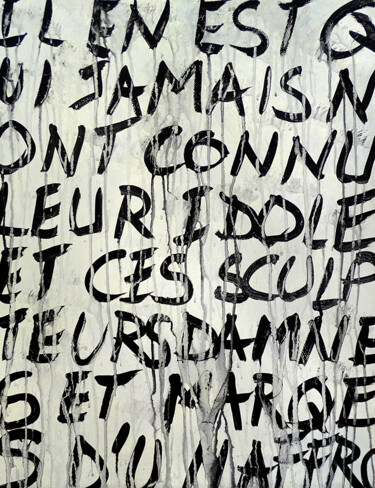 IL EN EST Q
UI JAMAIS N
ONT CONNU
LEUR IDOLE
ET CES SCULP
TEURS DAMNE
S ET MARQUE
S D'UN AFFRO